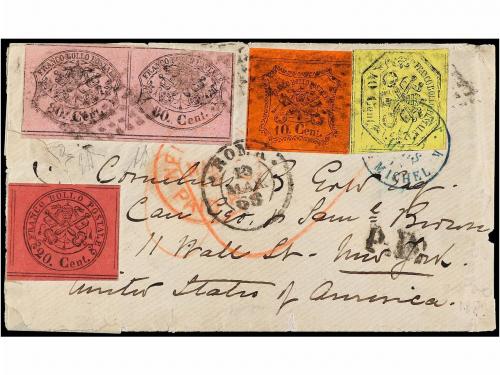 FRANCO BOLLO POSTALE
80. Cent.
FRANCO BOLLO POSTALE
80. Cent.
10. Cent.
40 Cent.
ROMA
19
MAR
68
MICHEL
FRANCO BOLLO POSTALE
20. Cent.
Cornelius B. Gold
Care Geo. & Saml Brown
11 Wall St. New York.
United States of America.
P.D.